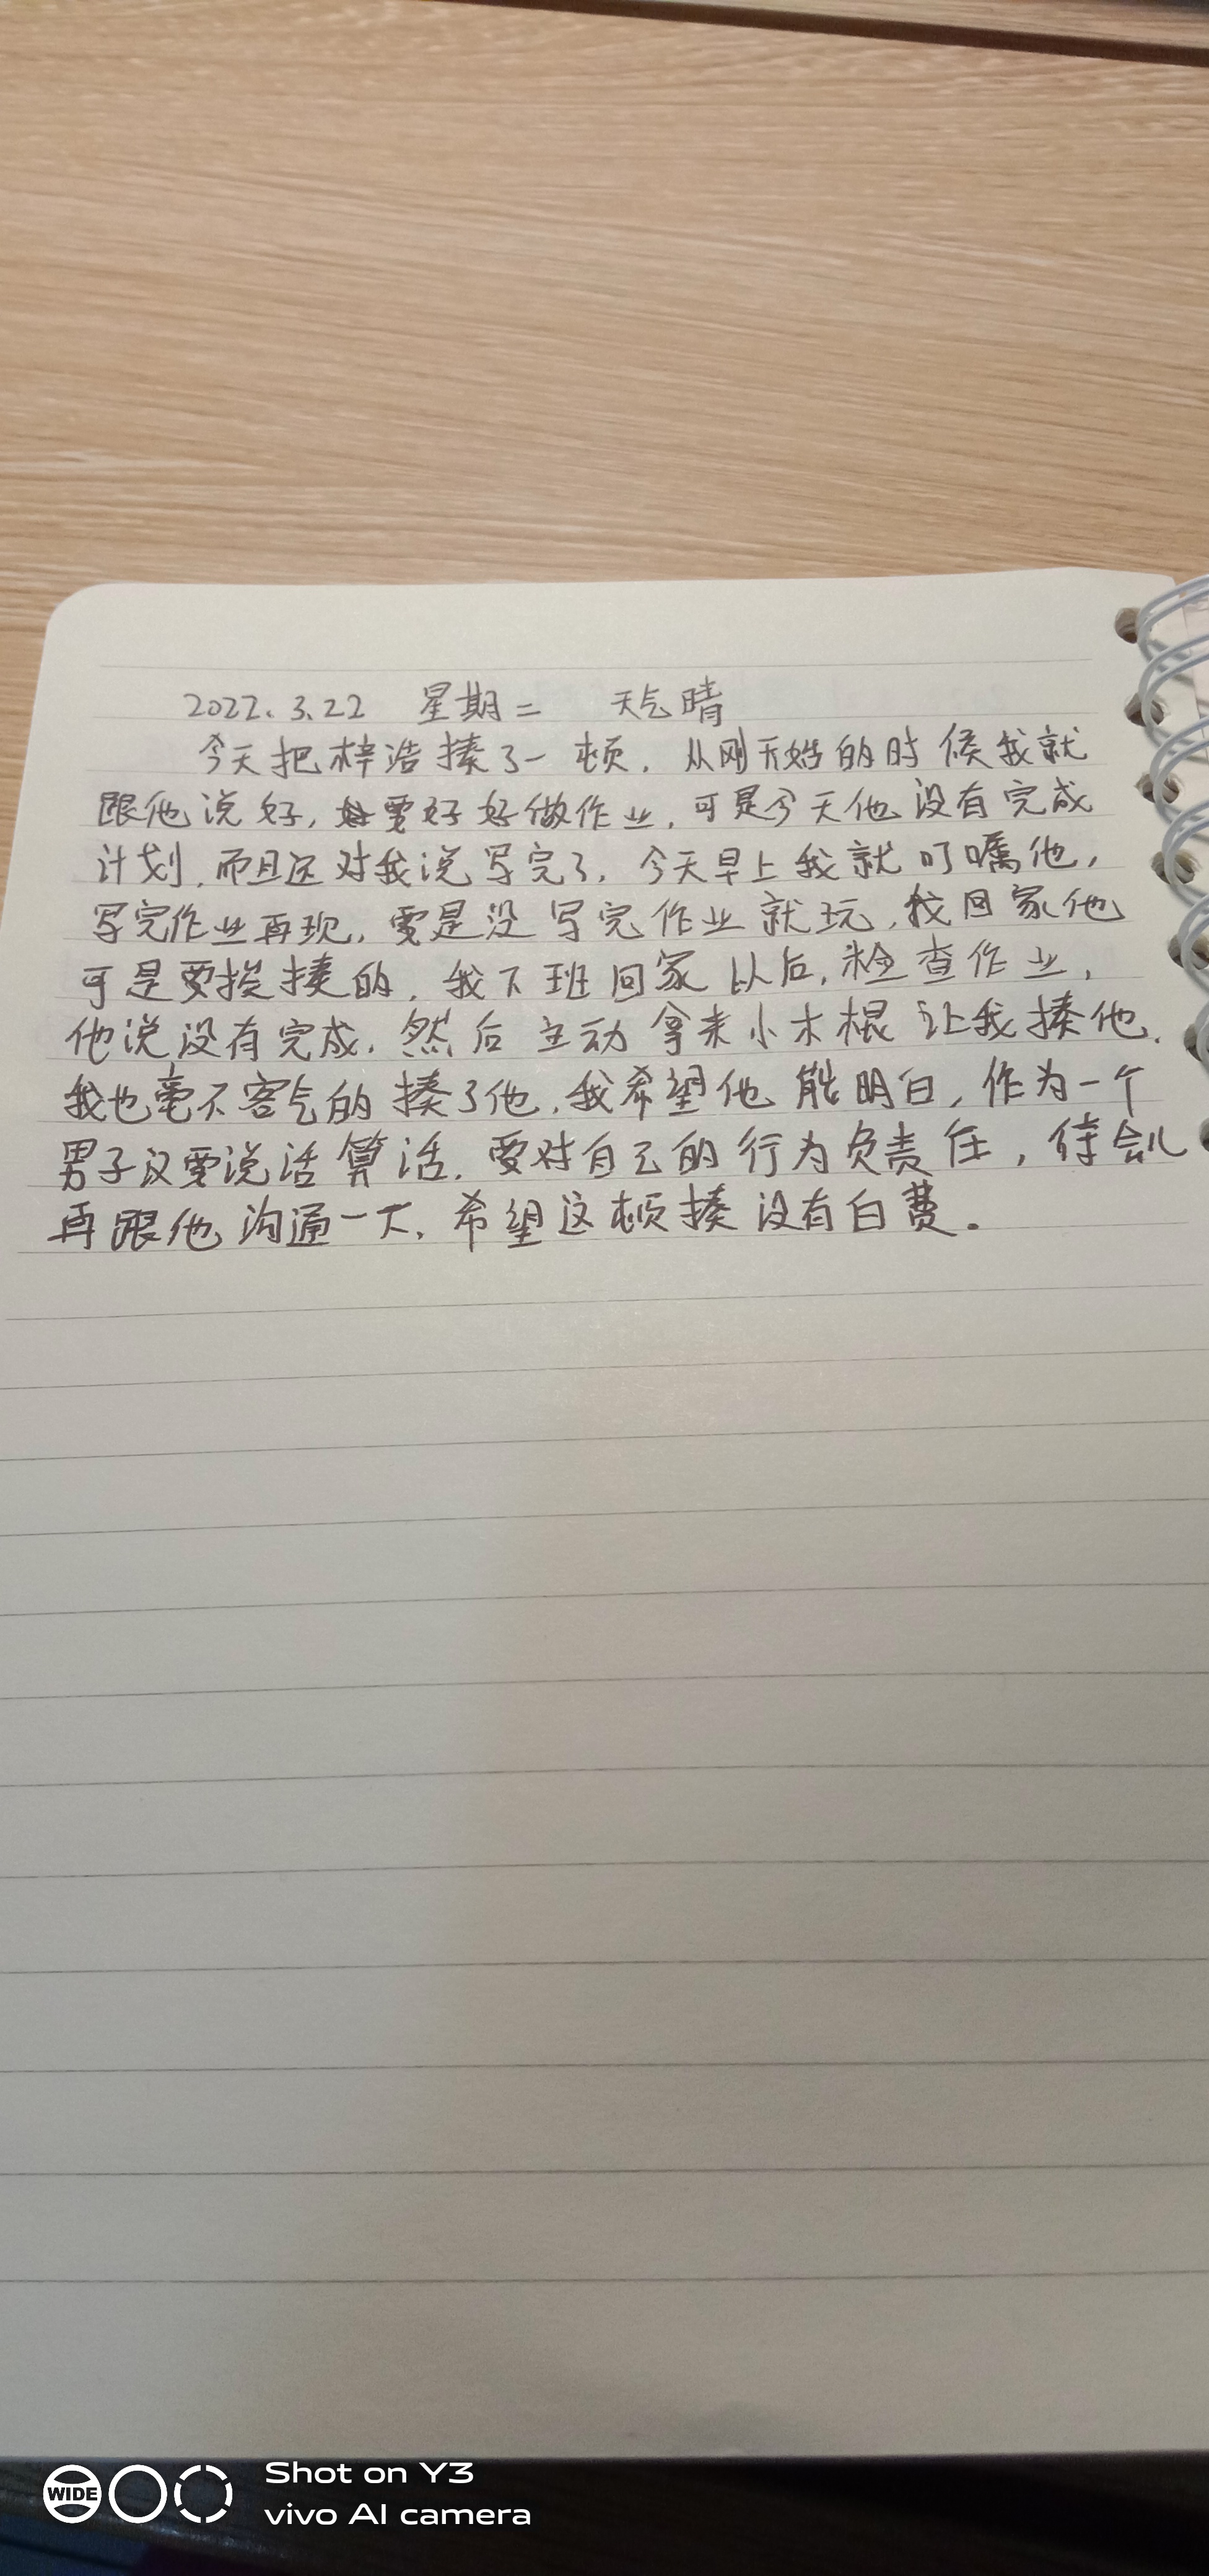 2022.3.22 星期二 天气晴
今天把梓浩揍了一顿，从刚开始的时候我就
跟他说好，要好好做作业，可是今天他没有完成
计划，而且还对我说写完了，今天早上我就叮嘱他，
写完作业再玩，要是没写完作业就玩，我回家他
可是要挨揍的，我下班回家以后，检查作业，
他说没有完成，然后主动拿来小木棍让我揍他，
我也毫不客气的揍了他，我希望他能明白，作为一个
男子汉要说话算话，要对自己的行为负责任，待会儿
再跟他沟通一下，希望这顿揍没有白费。
WIDE
Shot on Y3
vivo AI camera